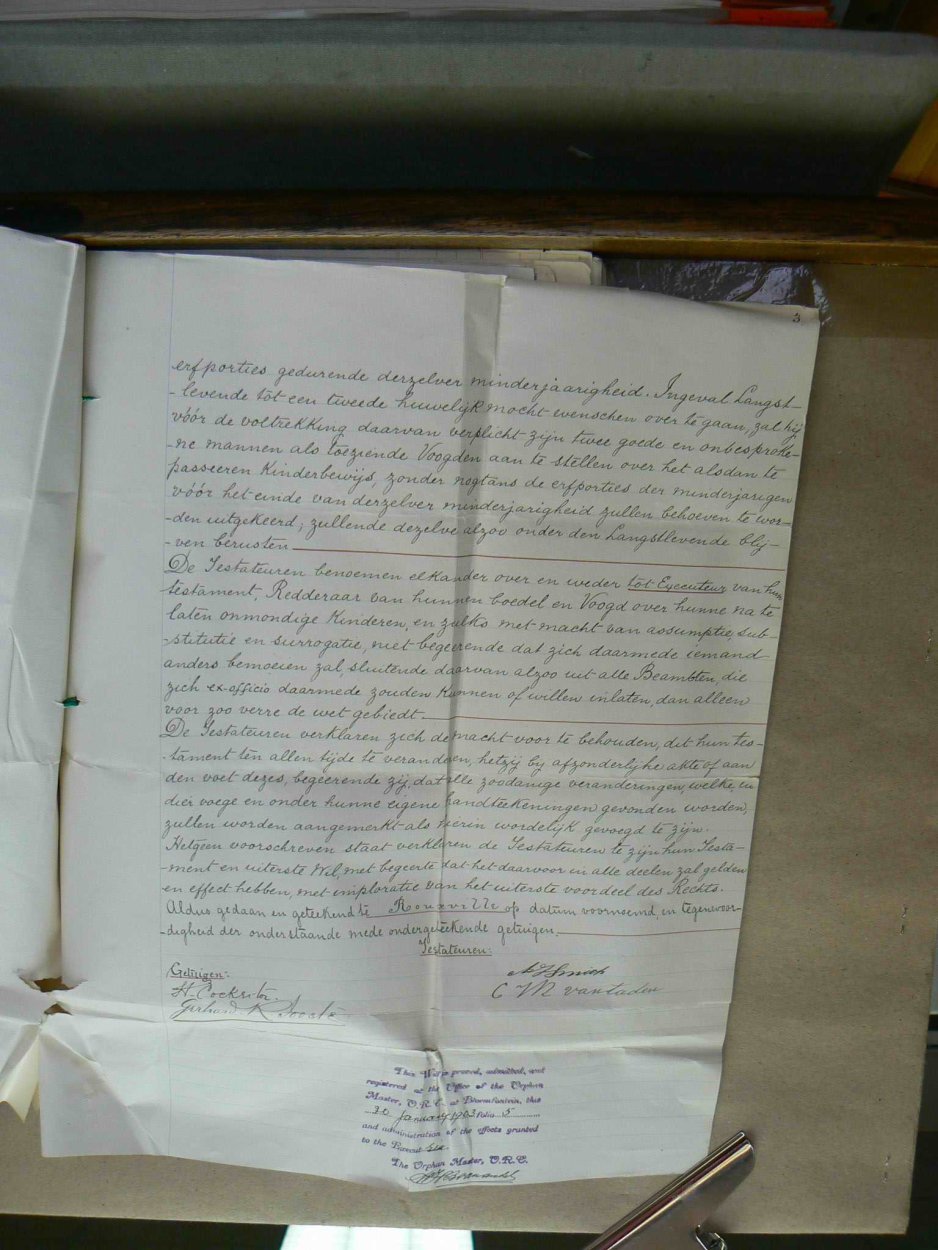 3.
erfporties gedurende derzelver minderjaarigheid. Ingeval Langst-
-levende tot een tweede huwelijk mocht wenschen over te gaan, zal hij
vóór de voltrekking daarvan verplicht zijn twee goede en onbesproke-
-ne mannen als toeziende Voogden aan te stellen over het alsdan te
passeeren Kinderbewijs, zonder nogtans de erfporties der minderjarigen
vóór het einde van derzelver minderjarigheid zullen behoeven te wor-
-den uitgekeerd; zullende dezelve alzoo onder den Langstlevende blij-
-ven berusten
De Testateuren benoemen elkander over en weder tot Executeur van hun
testament, Redderaar van hunnen boedel en Voogd over hunne na te
laten onmondige Kinderen, en zulks met macht van assumptie, sub-
-stitutie en surrogatie, niet begeerende dat zich daarmede iemand
anders bemoeien zal, sluitende daarvan alzoo uit alle Beambten, die
zich ex-officio daarmede zouden kunnen of willen inlaten, dan alleen
voor zoo verre de wet gebiedt.
De Testateuren verklaren zich de macht voor te behouden, dit hun tes-
-tament ten allen tijde te veranderen, hetzij by afzonderlyke akte of aan
den voet dezes, begeerende zij, dat alle zoodanige veranderingen, welke, in
dier voege en onder hunne eigene handteekeningen gevonden worden,
zullen worden aangemerkt als hierin wordelijk gevoegd te zijn.
Hetgeen voorschreven staat verklaren de Testateuren te zijn hun Testa-
-ment en uiterste Wil, met begeerte dat het daarvoor in alle deelen zal gelden
en effect hebben, met imploratie van het uiterste voordeel des Rechts.
Aldus gedaan en geteekend te Rouxville op datum voornoemd, in tegenwoor-
-digheid der onderstaande mede ondergeteekende getuigen.
Testateuren:
Getuigen:
Smith
H. Cockritor.
C M van Taden
Gerhard K
This Will is proved, admitted, and
registered at the Office of the Orphan
Master, O.R.C. at Bloemfontein, this
30 January 1903 folio 5
and administration of the effects granted
to the Execut
The Orphan Master, O.R.C.